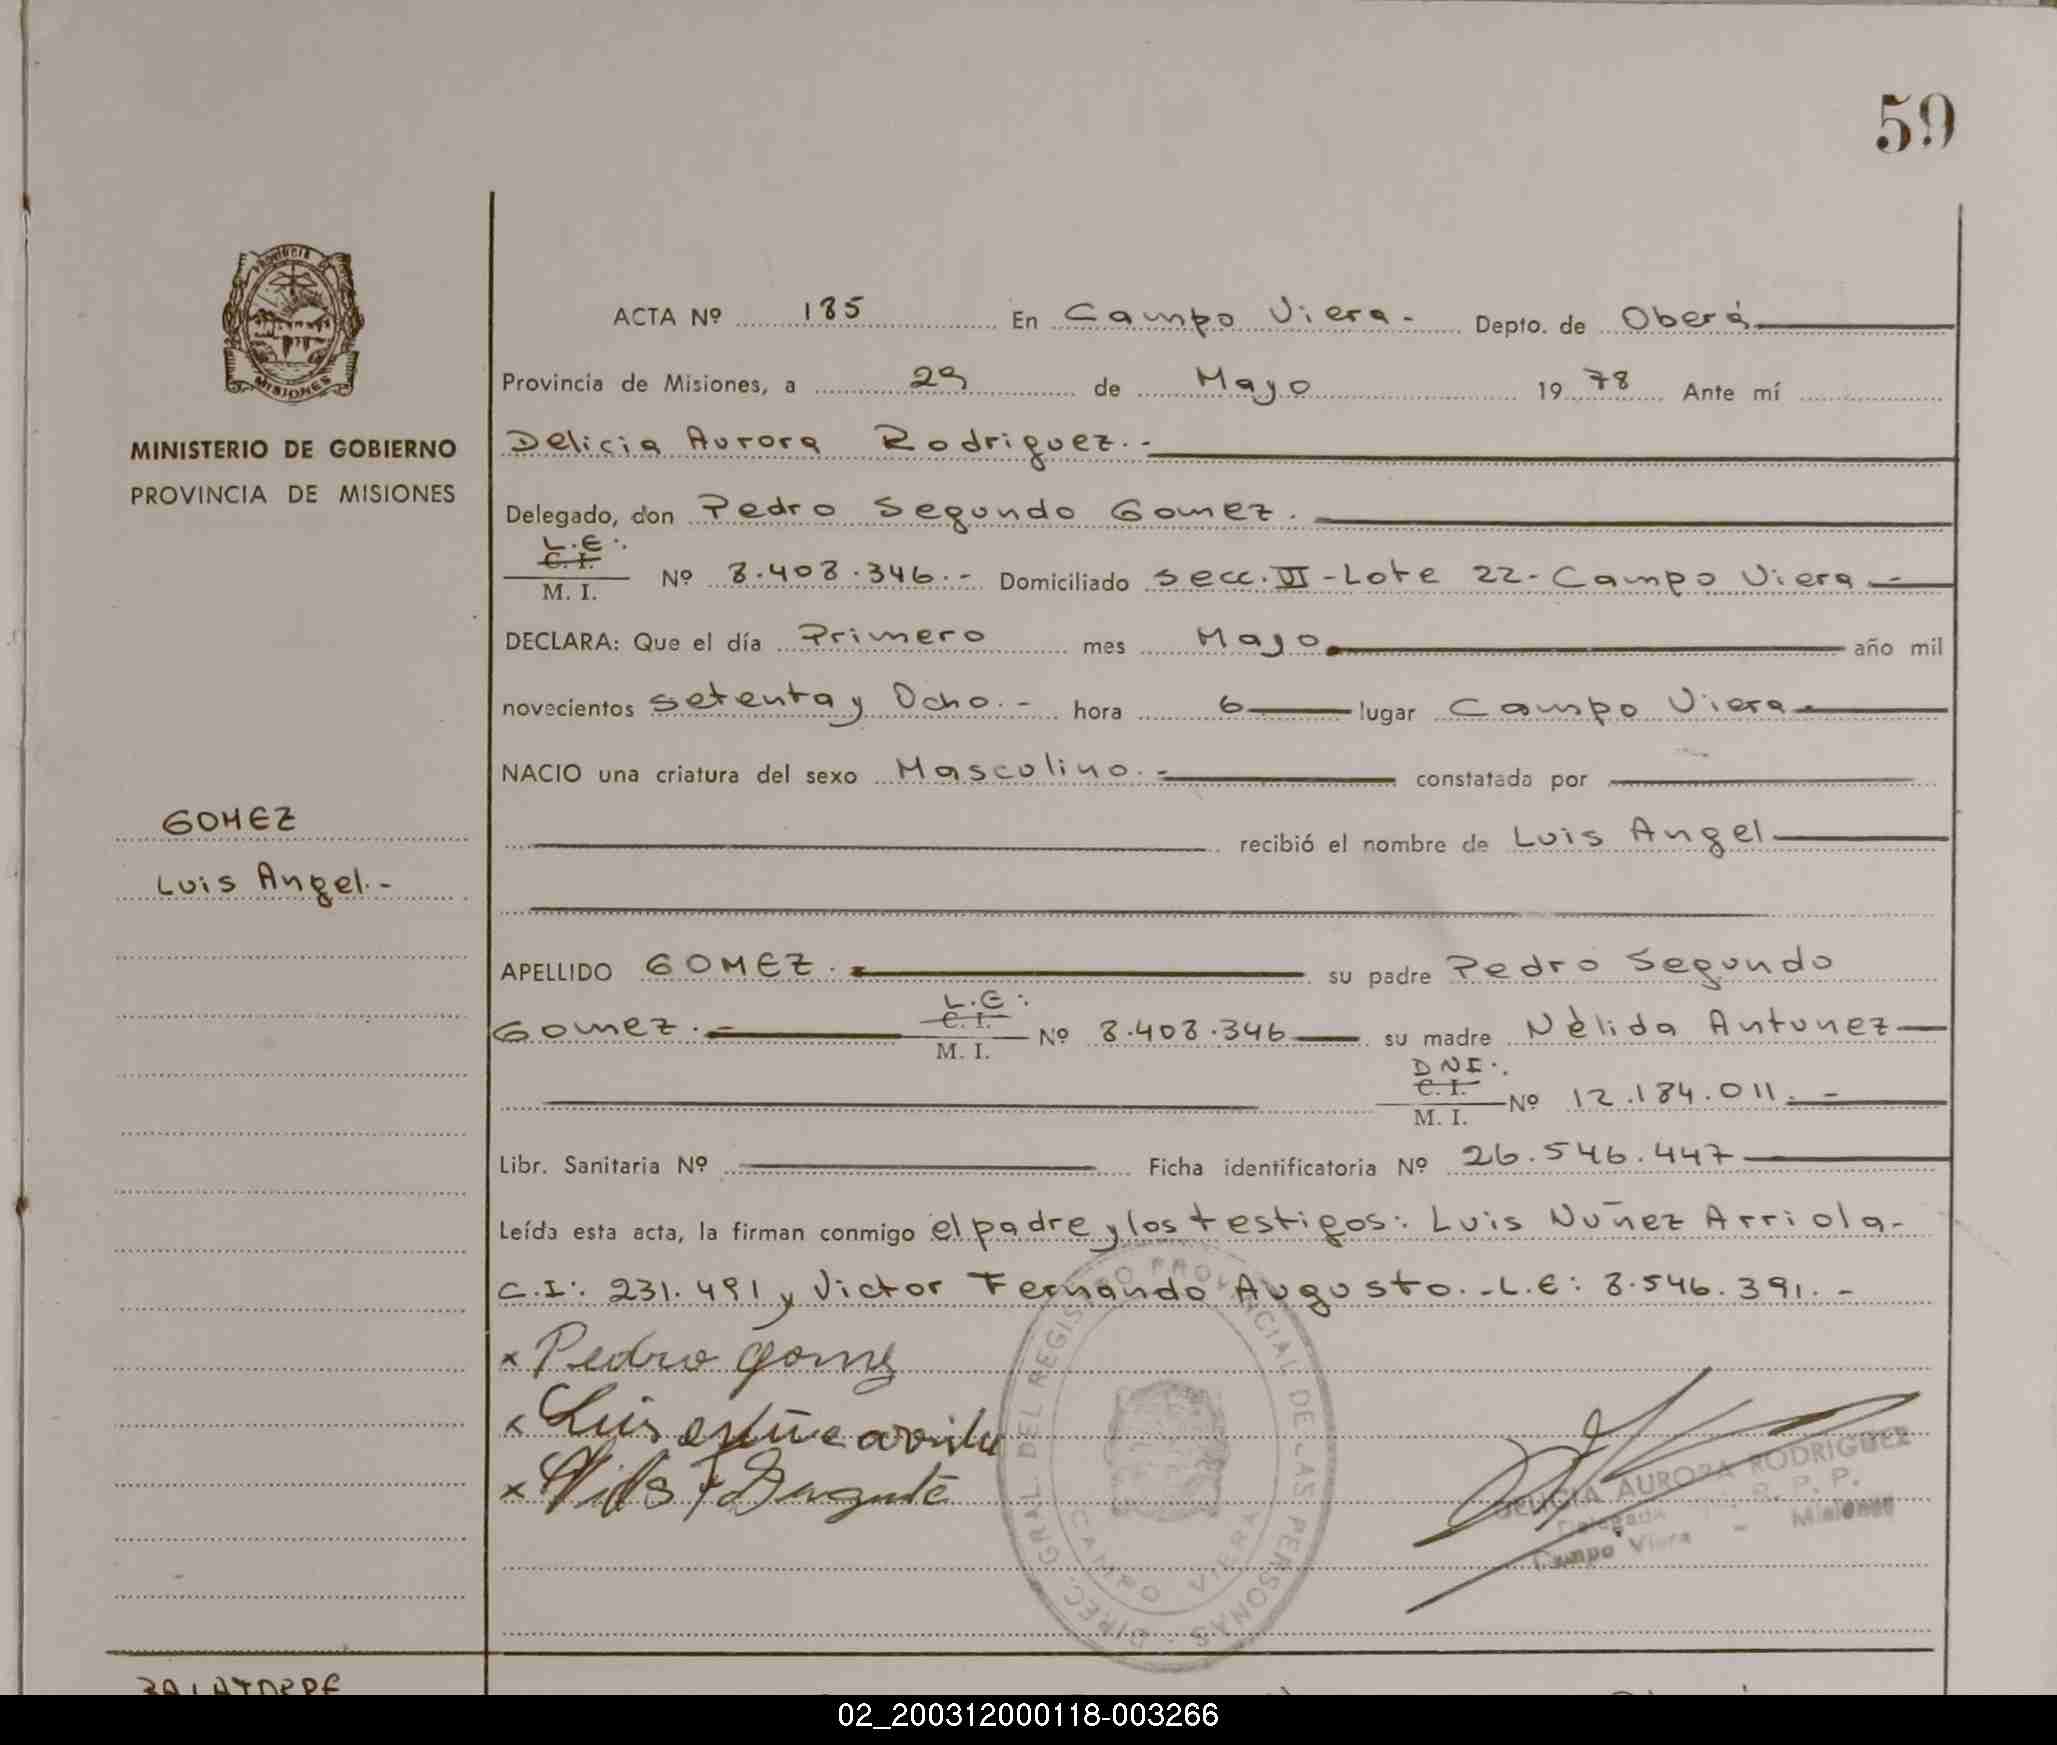 59
Provincia de
MISIONES
MINISTERIO DE GOBIERNO
PROVINCIA DE MISIONES
GOMEZ
Luis Angel.-
ACTA Nº 185 En Campo Viera.- Depto. de Oberá
Provincia de Misiones, a 29 de Mayo 19 78 Ante mí
Delicia Aurora Rodriguez.-
Delegado, don Pedro Segundo Gomez.
L.E.:
C. I.
M. I. Nº 8.408.346.- Domiciliado Secc. VI - Lote 22 - Campo Viera.-
DECLARA: Que el día Primero mes Mayo año mil
novecientos Setenta y Ocho.- hora 6 lugar Campo Viera
NACIO una criatura del sexo Masculino.- constatada por
recibió el nombre de Luis Angel
APELLIDO GOMEZ. su padre Pedro Segundo
L.E.:
C. I.
Gomez.- M. I. Nº 8.408.346 su madre Nèlida Antunez
DNI.:
C. I.
M. I. Nº 12.184.011.-
Libr. Sanitaria Nº Ficha identificatoria Nº 26.546.447
Leída esta acta, la firman conmigo el padre y los testigos: Luis Nuñez Arriola-
C.I: 231.491 y Victor Fernando Augusto.-L.E: 8.546.391.-
x Pedro Gomez
x Luis
x
DIREC. GRAL. DEL REGISTRO PROVINCIAL DE LAS PERSONAS
CAMPO VIERA
DELICIA AURORA RODRIGUEZ
Delegada R. P. P.
Campo Viera - Misiones
02_200312000118-003266